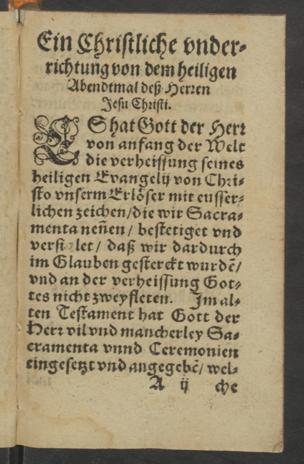 Ein Christliche vnder-
richtung von dem heiligen
Abendtmal deß Herren
Jesu Christi.
ES hat Gott der Herr
von anfang der Welt
die verheissung seines
heiligen Evangelij von Chri-
sto vnserm Erlöser mit eusser-
lichen zeichen/ die wir Sacra-
menta neñen/ bestetiget vnd
versiglet/ daß wir dardurch
im Glauben gesterckt wurdẽ/
vnd an der verheissung Got-
tes nicht zweyfleten. Im al-
ten Testament hat Gott der
Herr vil vnd mancherley Sa-
cramenta vnnd Ceremonien
eingesetzt vnd angegebẽ/ wel-
A ij che